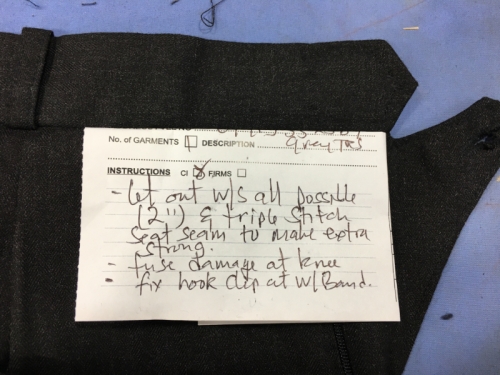 No. of GARMENTS 1 DESCRIPTION Grey TRS
INSTRUCTIONS CI F/RMS
- Let out w/s all possible
(2") & triple stitch
seat seam to make extra
strong.
- fuse damage at knee
- fix hook clip at w/Band.